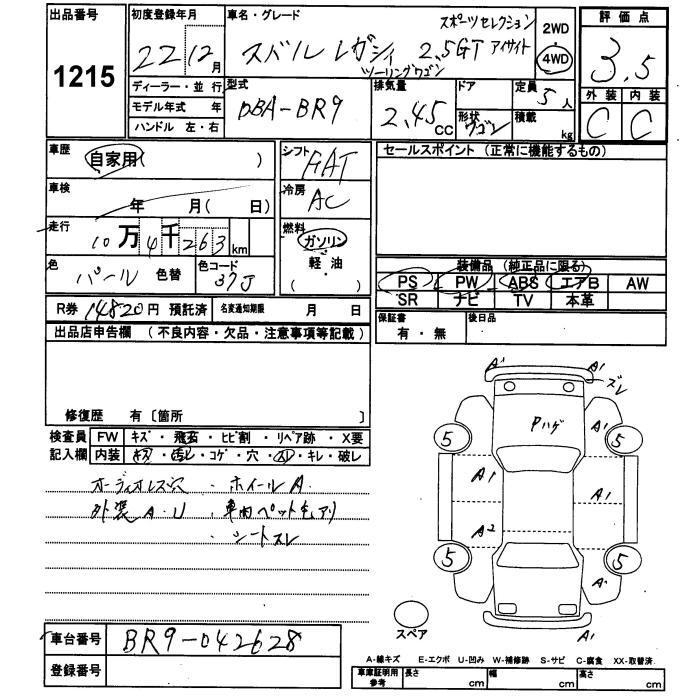 出品番号 1215
初度登録年月 22 12月
車名・グレード スポーツセレクション
スバル レガシィ 2.5GT アイサイト
ツーリングワゴン
2WD
4WD
評価点 3.5
外装 内装
C C
ディーラー・並行
モデル年式 年
ハンドル 左・右
型式 DBA-BR9
排気量 2.45 CC
ドア
形状 ワゴン
定員 5人
積載 kg
車歴 自家用( )
シフト FAT
セールスポイント (正常に機能するもの)
車検 年 月( 日)
冷房 AC
走行 10万4千263km
燃料 ガソリン
軽・油
( ・ )
色 パール 色替
色コード 37J
装備品 (純正品に限る)
PS PW ABS エアB AW
SR ナビ TV 本革
R券 14820円 預託済
名変通知期限 月 日
保証書 有・無
後日品
出品店申告欄 (不良内容・欠品・注意事項等記載)
修復歴 有〔箇所 〕
検査員 FW キズ・飛石・ヒビ割・リペア跡・X要
記入欄 内装 キズ・汚レ・コゲ・穴・スレ・キレ・破レ
オーディオレス ・ホイールA
外装A・U ・車内ペット毛アリ
・シートスレ
A1 A1
ズレ
Pハゲ A1
5 5
A1 A1
A2
5 5
A1
スペア
車台番号 BR9-042628
登録番号
A-線キズ E-エクボ U-凹み W-補修跡 S-サビ C-腐食 XX-取替済
車庫証明用参考 長さ cm 幅 cm 高さ cm